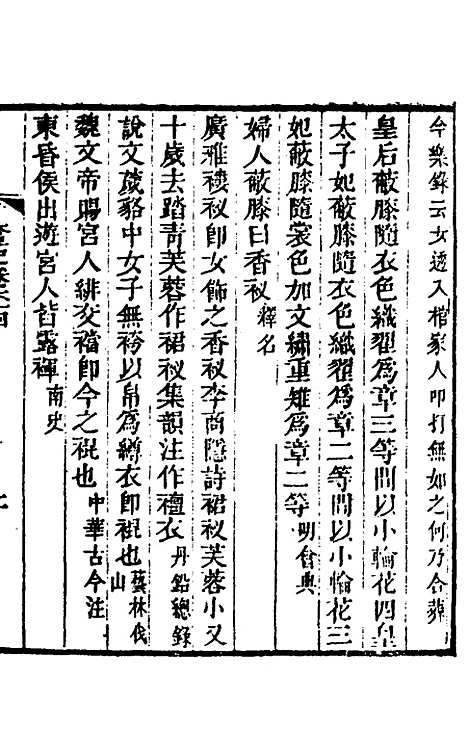 今樂錄云女透入棺家人叩打無如之何乃合葬
皇后蔽膝隨衣色織翟爲章三等間以小輪花四皇
太子妃蔽膝隨衣色織翟爲章二等間以小輪花三
妃蔽膝隨裳色加文繡重雉爲章二等明會典
婦人蔽膝曰香袐釋名
廣雅褸袐卽女飾之香袐李商隱詩裙袐芙蓉小又
十歲去踏靑芙蓉作裙袐集韻注作襢衣丹鉛總錄
說文薉貉中女子無袴以帛爲繜衣卽裩也藝林伐山
魏文帝賜宮人緋交襠卽今之裩也中華古今注
東昏侯出遊宮人皆露褌南史